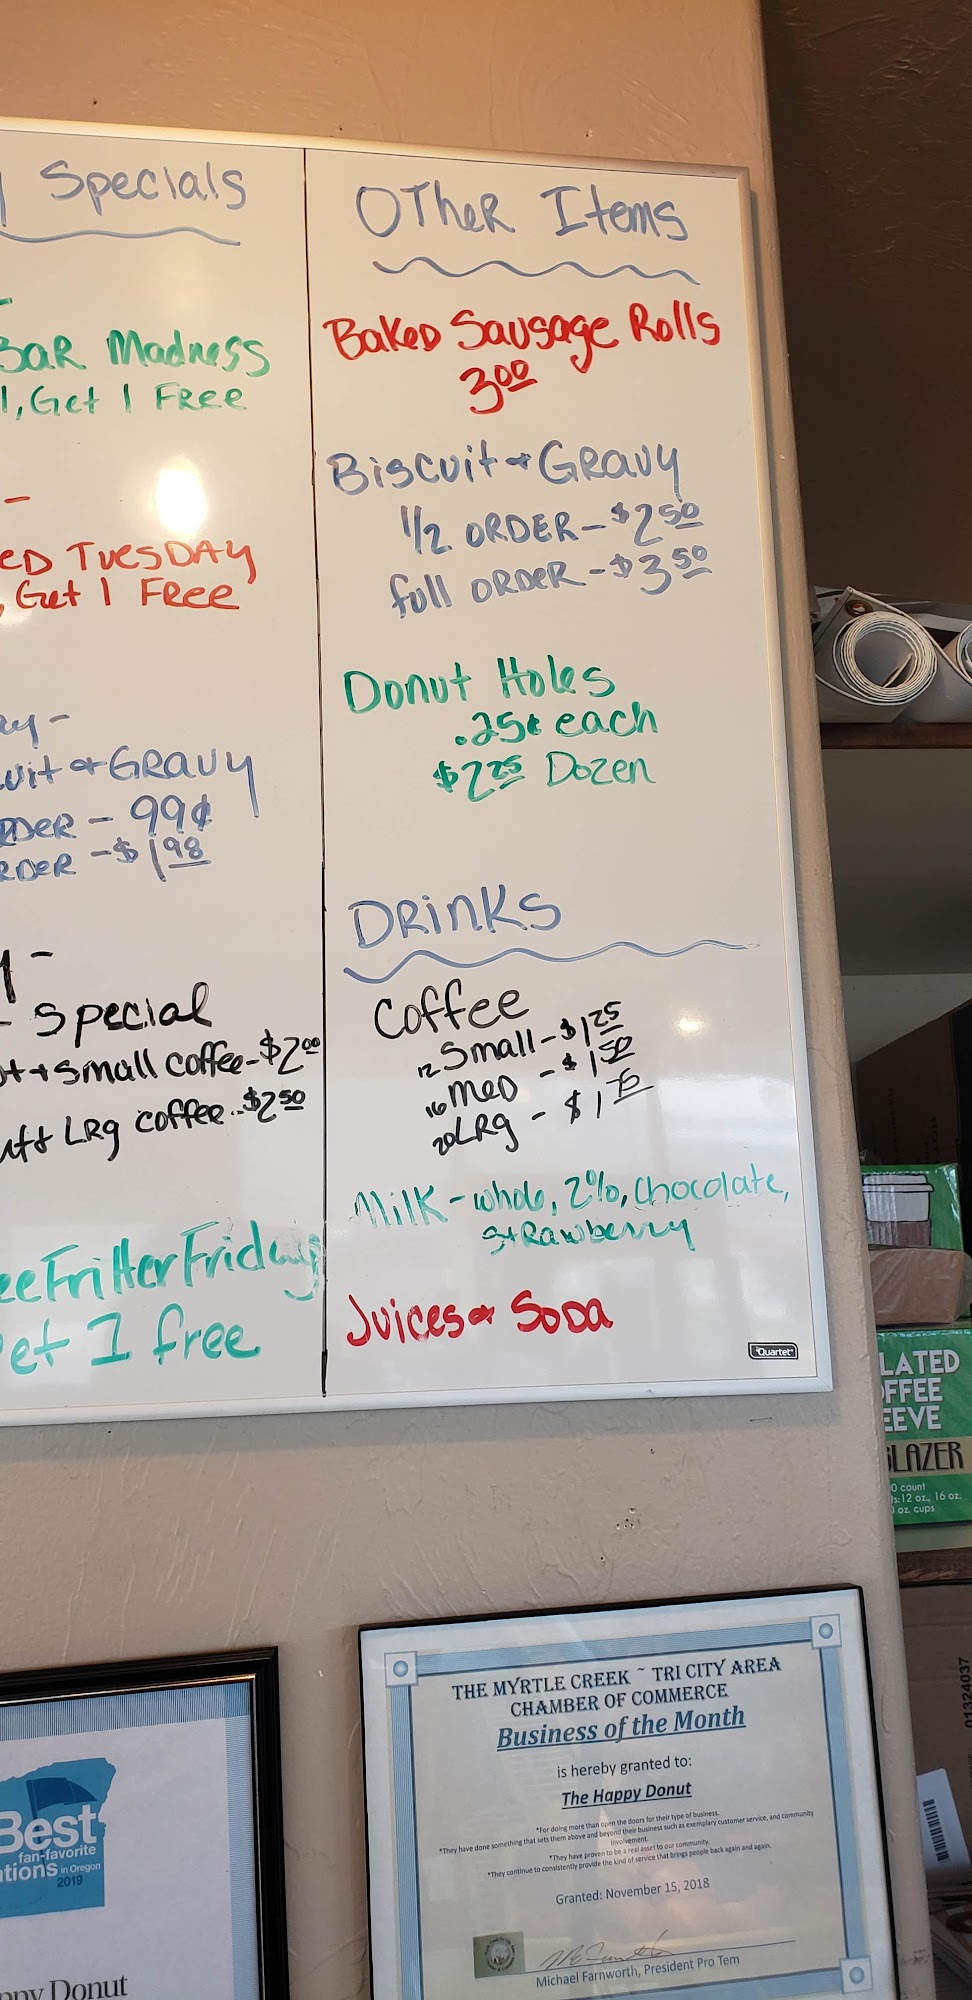 Specials
Bar Madness
1, Get 1 Free
-
ED TuesDAY
, Get 1 Free
ay-
uit & GRAVY
RDER - 99¢
RDER - $1.98
y -
- Special
t + small coffee - $2.00
LRg coffee .. $2.50
eeFritterFriday
et 1 free
OTheR Items
BakeD Sausage Rolls
3.00
Biscuit & GRavy
1/2 ORDER - $2.50
full ORDER - $3.50
Donut Holes
.25¢ each
$2.25 Dozen
DRinKs
Coffee
12 Small - $1.25
16 MED - $1.50
20 LRg - $1.75
MilK - whole, 2%, Chocolate,
stRawberry
Juices & SoDa
Quartet
LATED
FFEE
EEVE
LAZER
0 count
s: 12 oz., 16 oz.
oz. cups
01324037
Best
fan-favorite
ations in Oregon
2019
ppy Donut
THE MYRTLE CREEK ~ TRI CITY AREA
CHAMBER OF COMMERCE
Business of the Month
is hereby granted to:
The Happy Donut
*For doing more than open the doors for their type of business.
*They have done something that sets them above and beyond their business such as exemplary customer service, and community
involvement.
*They have proven to be a real asset to our community.
*They continue to consistently provide the kind of service that brings people back again and again.
Granted: November 15, 2018
Michael Farnworth, President Pro Tem